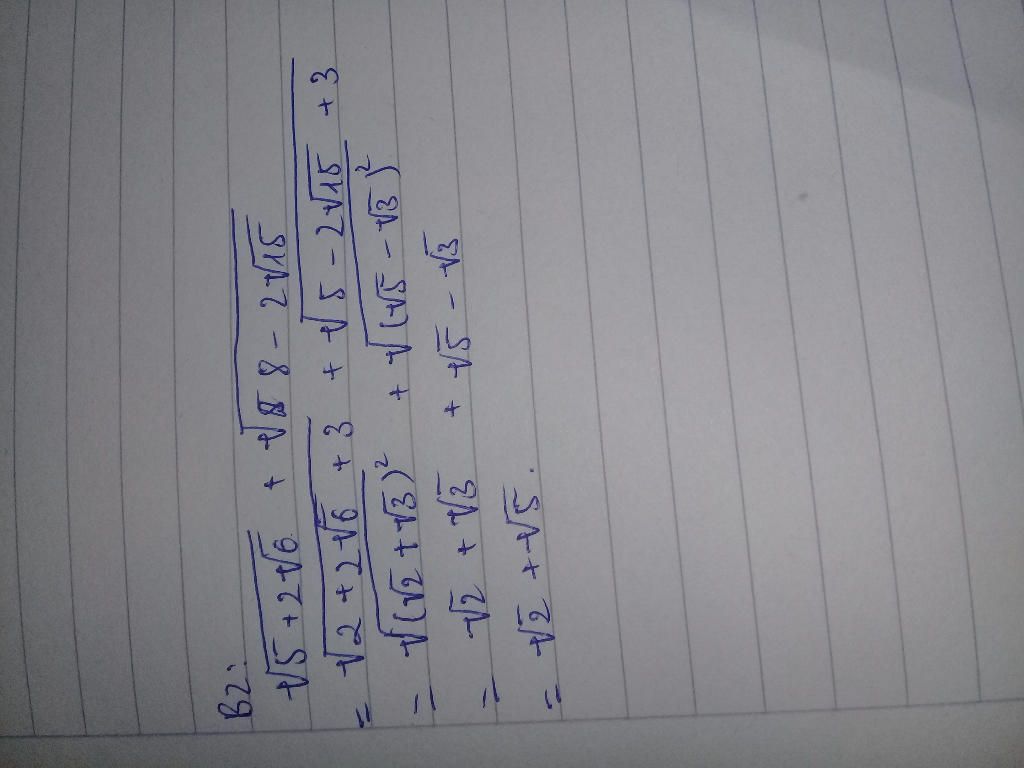 B2:
√(5 + 2√6) + √(8 - 2√15)
= √(2 + 2√6 + 3) + √(5 - 2√15 + 3)
= √((√2 + √3)²) + √((√5 - √3)²)
= √2 + √3 + √5 - √3
= √2 + √5.